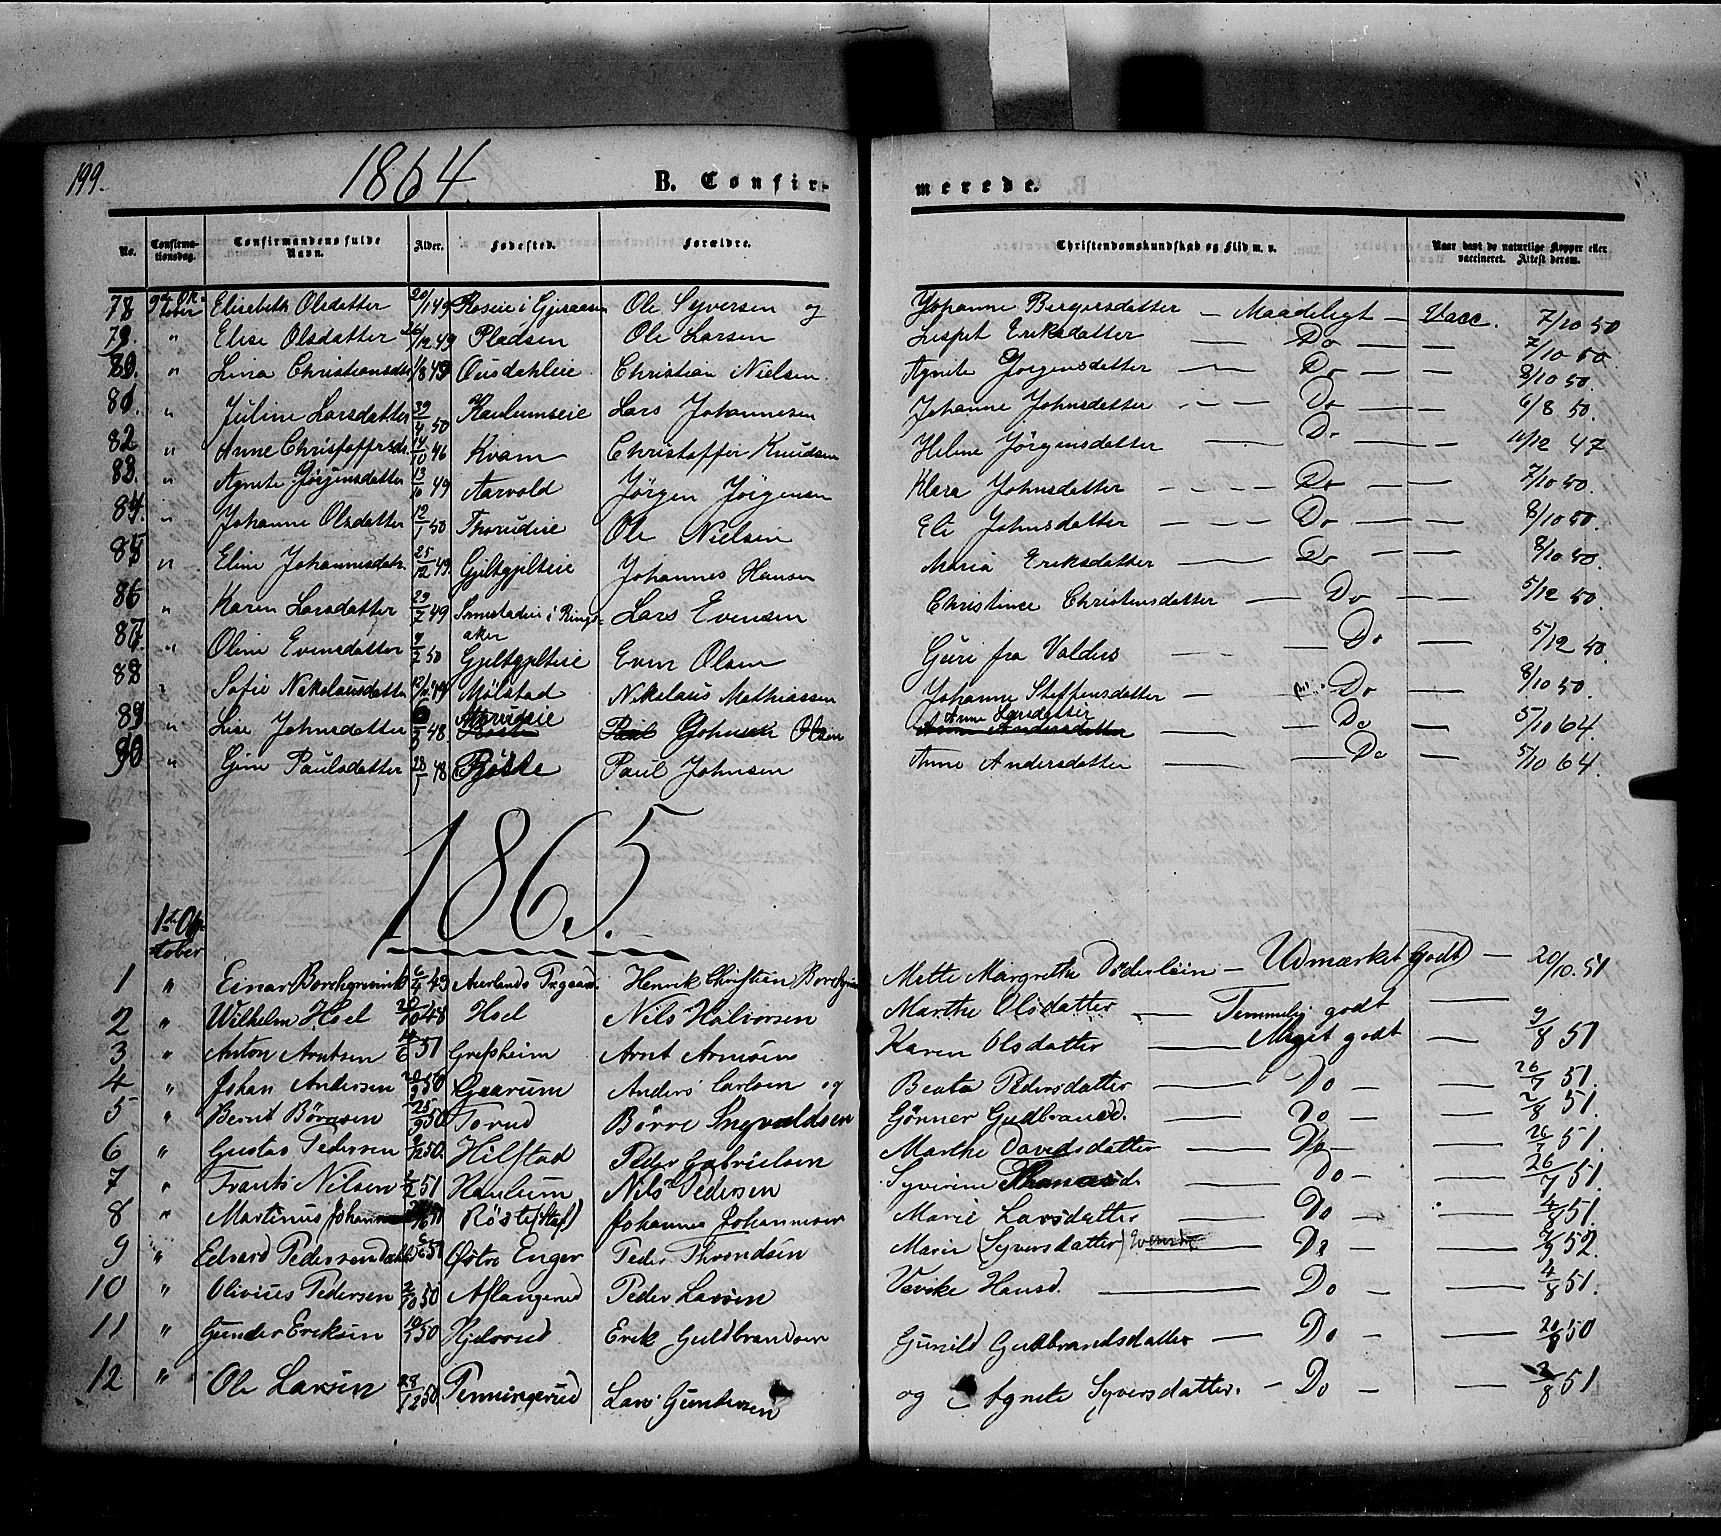 199.
1864.
B. Confir-
merede.
No. Confirma-tionsdag. Confirmandens fulde Navn. Alder. Fødested. Forældre. Christendomskundskab og Flid m. v. Naar havt de naturlige Kopper eller vaccineret. Attest derom.
78 9de Oktober Elisebeth Olsdatter 20/1 49 Roseie i Ole Syversen og Johanne Bergersdatter — Maadeligt — Vacc. 7/10 50
79. " Elise Olsdatter 26/12 49 Pladsen Ole Larsen Lispet Eriksdatter — Do — — 7/10 50.
80. " Lina Christiansdtr 1/8 49 Ousdahleie Christian Nielsen. Agnite Jørgensdatter — Do — — 8/10 50.
81. " Juline Larsdatter 4 50 Kaulumseie Lars Johannesen Johanne Johnsdatter — Do — — 6/8 50.
82 " Anne Christoffersdr 14/11 46 Kvam Christoffer Knudsen Helene Jörgensdatter — Do — — 11/12 47
83. " Agnete Jørgensdatter 13/10 49 Aarvold Jörgen Jörgensen Klara Johnsdatter — Do — — 7/10 50.
84. " Johanne Olsdatter 12/1 50 Thorudeie Ole Nielsen Eli Johnsdatter — Do — — 8/10 50.
85 " Eline Johannisdatr 25/12 49. Gjeltgjelteie Johannes Hansen Maria Eriksdatter — Do — — 8/10 50.
86 " Karen Larsdatter 29/7 49 Smestadeie i Ringsaker Lars Evensen Christine Christensdatter — Do — — 5/12 50.
87. " Oline Evensdatter 50 Gjeltgjelteie Even Olsen Guri fra Valdus — Do — — 5/12 50.
88 " Sofie Nikolausdatter 49 Mølstad Nikolaus Mathiassen Johanne Steffensdatter — Do — — 8/10 50
89 " Lise Johnsdatter 48 Johnsen Olsen Anne Larsdatter — Do — — 5/10 64.
90 " Gine Paulsdatter 28/1 48 Røste Paul Johnsen Anne Andersdatter — Do — 5/10 64.
1865.
1ste Oktober
1 " Einar Borchgrevink 49 Aurlands Prgaard. Henrik Christian Borchgrevink Mette Margrethe Döderlein — Udmærket godt — 20/10. 51
2 " Wilhelm Hoel 20/10 48 Hoel Nils Halvorsen Marthe Olsdatter — Temmelig godt —
3 " Anton Arntsen 6 51 Grefsheim Arnt Arnsen Karen Olsdatter — Meget godt — 9/8 51
4 " Johan Andersen 20/9 50 Gaarum Anders Carlsen og Beata Pedersdatter — Do — — 26/7 51.
5 " Bernt Börresen 25/9 50 Torud Börre Ingvaldsen Gönner Gudbrandsd. — Do — — 2/8 51.
6 " Gustav Pedersen 50. Hilstad Peder Gabrielsen Marthe Davidsdatter — Do — — 26/7 51.
7 " Frants Nilsen 2/2 51 Haulum Nils Pedersen Syverine Thomasd. — Do — — 26/7 51.
8 " Martinus 51 Röste (Staf) Johannes Johannesen Marie Larsdatter — Do — 4/8 51.
9 " Edvard Pedersen 51 Østre Enger Peder Throndsen Marie (Syversdatter) — Do — — 7/9 52.
10 " Olivius Pedersen 2/10 50 Aflangerud Peder Larsen Vevike Hansd. — Do — — 4/8 51.
11 " Gunder Eriksen 50 Hjelvrud Erik Guldbrandsen Gunild Gudbrandsdatter — Do — — 20/8 50
12 " Ole Larsen 28/12 50. Penningerud Lars Gundersen og Agnete Syversdatter. — Do — — 2/8 51